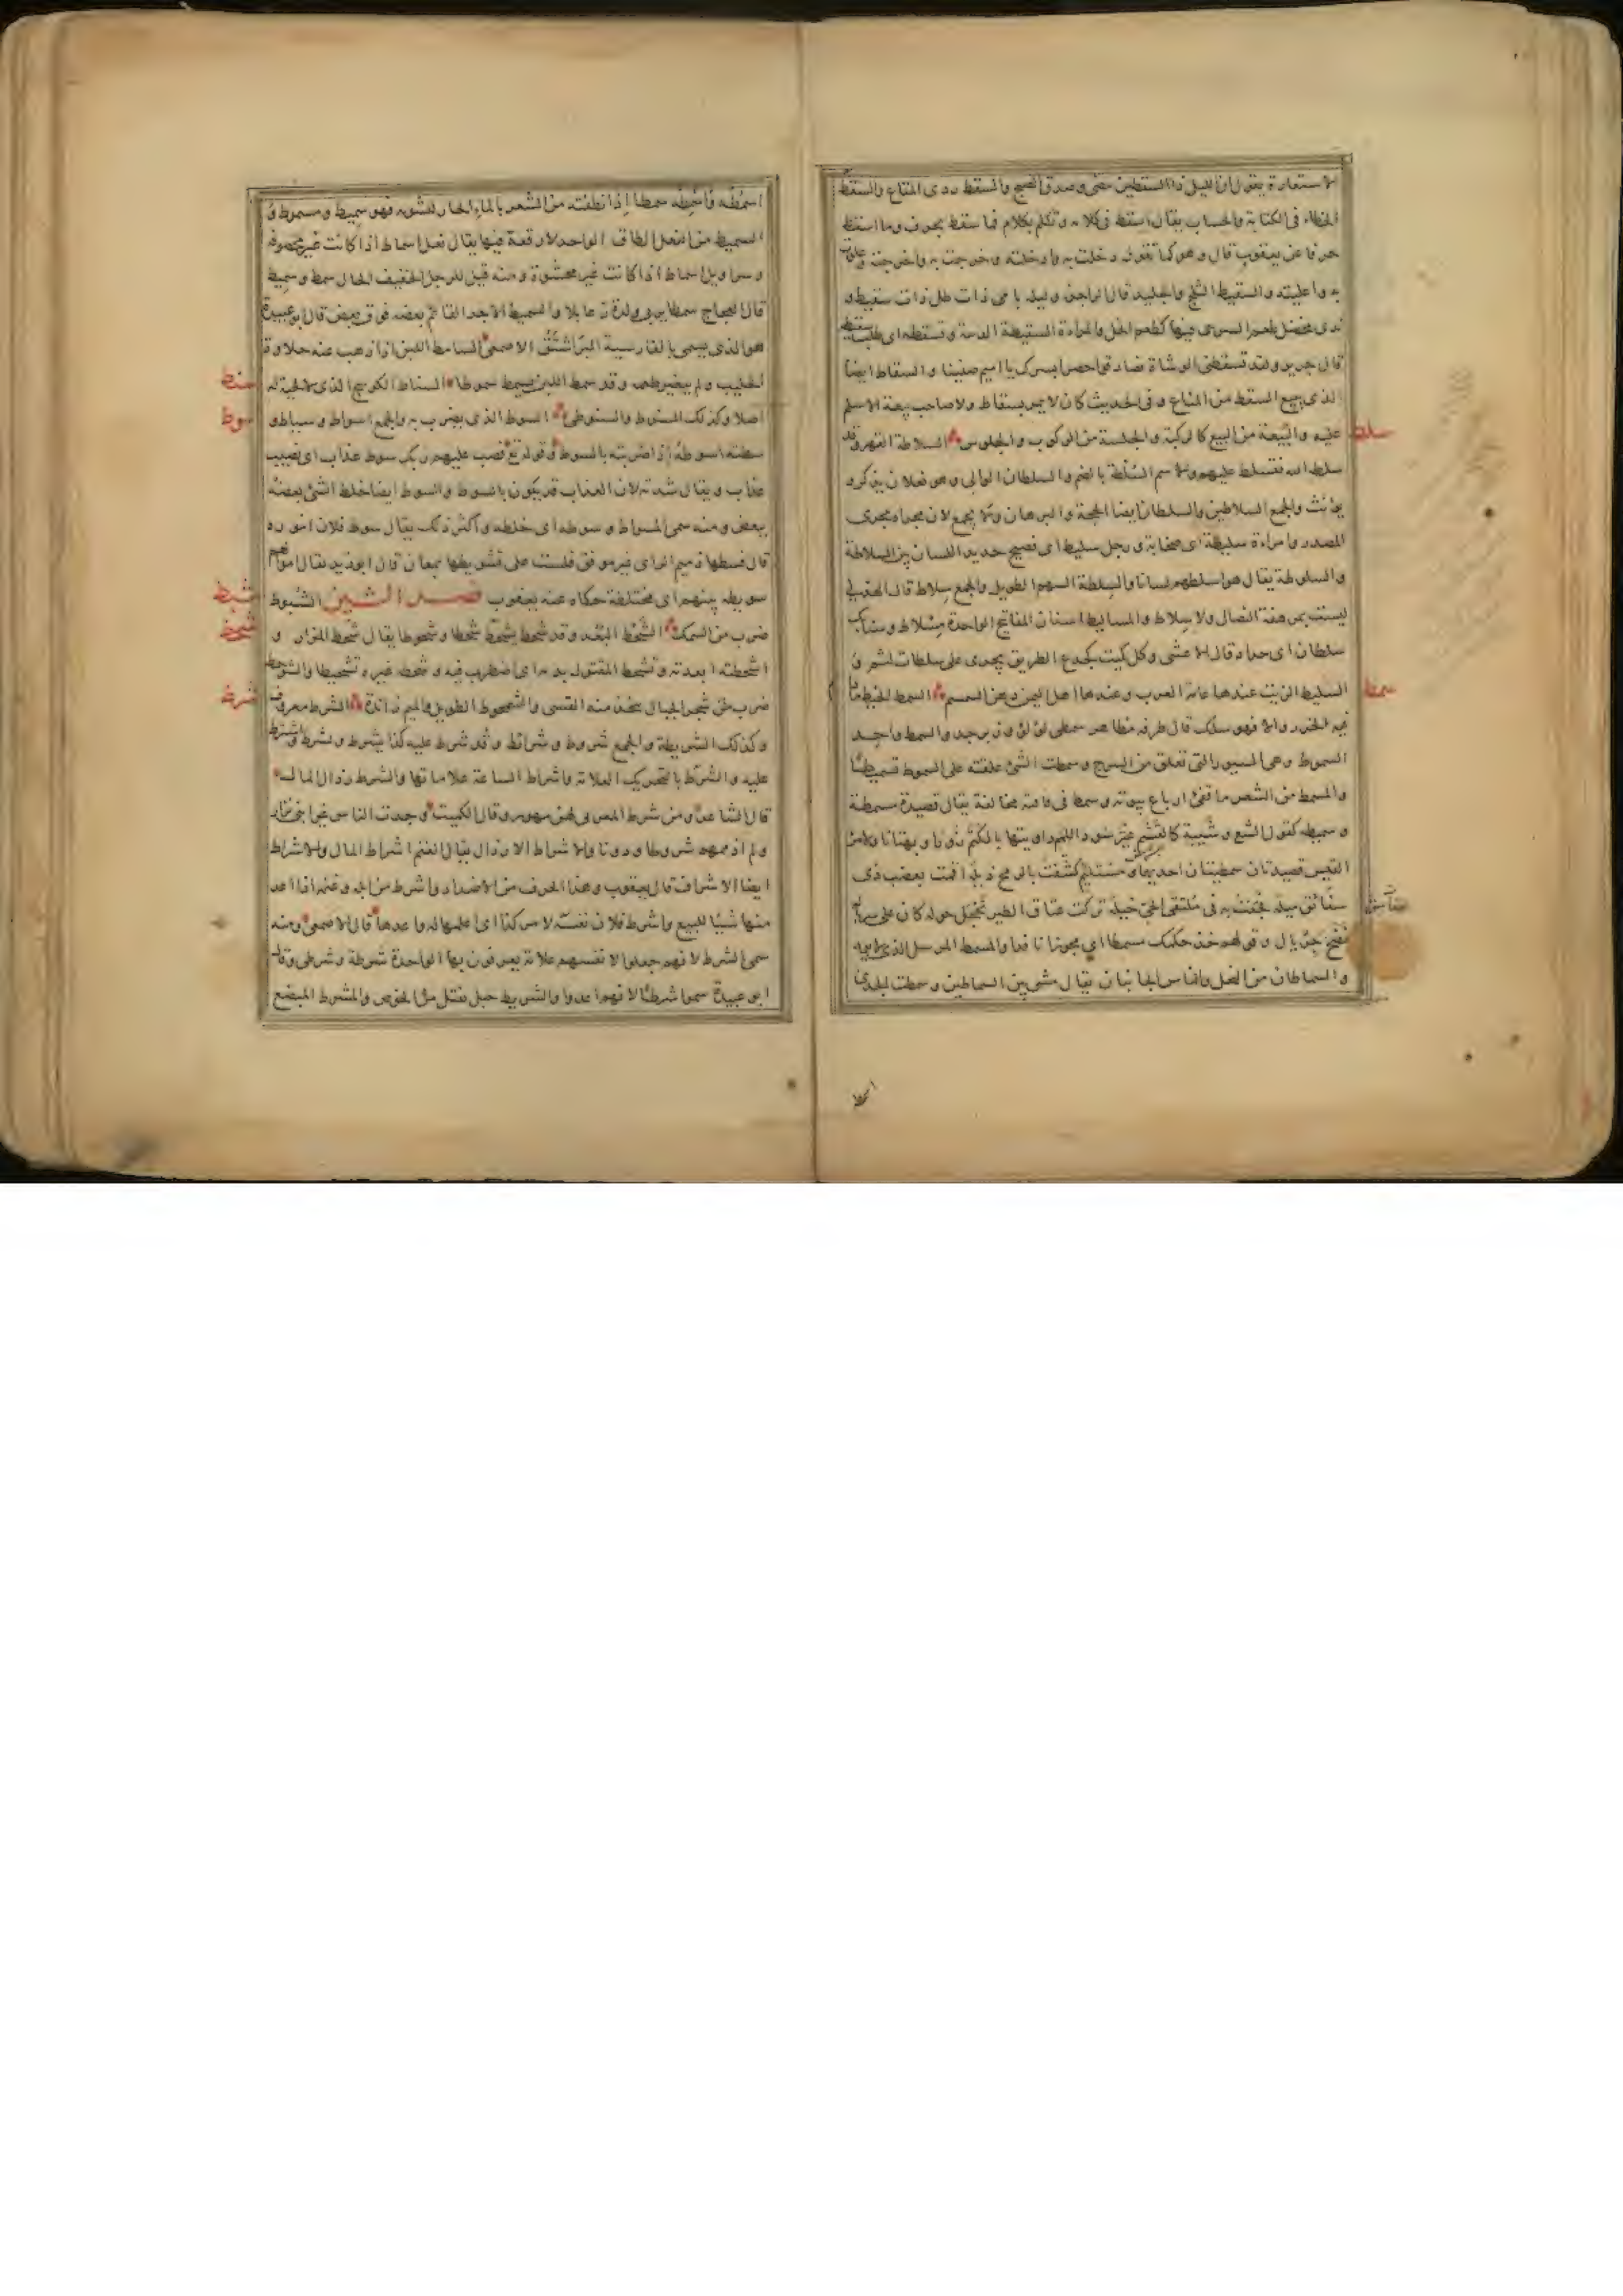 الاستعارة يقول ان الليل ذا السقطين مضى وصدق الصبح والسقط ردى المتاع والسقط
الخطاء فى الكتابة والحساب يقال اسقط فى كلامه وتكلم بكلام فما سقط بحرف وما اسقط
حرفا عن يعقوب قال وهو كما تقول دخلت به وادخلته وخرجت به واخرجته وعلوت
به واعليته والسقيط الثلج والجليد قال الراجز وليلة يا مى ذات طل ذات سقيط و
ندى مخضل طعم السرى فيها كطعم الخل والمراءة السقيطة الدنية وتسقطه اى طلب سقطه
قال جرير ولقد تسقطنى الوشاة فصادفوا حصرا بسرك يا اميم ضنينا والسقاط ايضا
الذى يبيع السقط من المتاع وفى الحديث كان لا يمر بسقاط ولا صاحب بيعة الا سلم
عليه والبيعة من البيع كالركبة والجلسة من الركوب والجلوس السلاطة القهر وقد
سلطه الله فتسلط عليهم والاسم السلطة بالضم والسلطان الوالى وهو فعلان يذكر و
يؤنث والجمع السلاطين والسلطان ايضا الحجة والبرهان ولا يجمع لان مجراه مجرى
المصدر وامراءة سليطة اى صخابة ورجل سليط اى فصيح حديد اللسان بين السلاطة
والسلوطة يقال هو اسلطهم لسانا والسلطة السهم الطويل والجمع سلاط قال الهذلى
ليست بمرهفة النصال ولا سلاط والمساليط اسنان المفاتيح الواحدة مسلاط وسنابك
سلطات اى حداد قال الاعشى وكل كميت كجذع الطريق يجرى على سلطات لثم و
السليط الزيت عند عامة العرب وعند اهل اليمن دهن السمسم السمط الخيط مادام
فيه الخرز والا فهو سلك قال طرفة مظاهر سمطى لؤلؤ وزبرجد والسمط واحد
السموط وهى السيور التى تعلق من السرج وسمطت الشئ علقته على السموط تسميطا
والمسمط من الشعر ما قفى ارباع بيوته وسمط فى قافية مخالفة يقال قصيدة مسمطة
وسميطة كقول الشاعر وشيبة كالقسم غير سود اللمم داويتها بالكتم زورا وبهتانا ولامرئ
القيس قصيدتان سمطيتان احديهما ومستلئم كشفت بالرمح ذيله اقمت بعضب ذى
سفاسق ميله فجعت به فى ملتقى الحى خيله تركت عتاق الطير تحجل حوله كان على سرباله
نضح جريال وقولهم خذ حكمك مسمطا اى مجوزا نافذا والمسمط المرسل الذى لا يرد
والسماطان من النخل والناس الجانبان يقال مشى بين السماطين وسمطت الجدى
سلط
سمط
اسمطه واسمطه سمطا اذا نظفته من الشعر بالماء الحار لتشويه فهو سميط ومسموط و
السميط من النعل الطاق الواحد لا رقعة فيها يقال نعل اسماط اذا كانت غير مخصوفة
وسراويل اسماط اذا كانت غير محشوة ومنه قيل للرجل الخفيف الحال سمط وسميط
قال العجاج سمطا يربى ولدة زعابلا والسميط الاجر القائم بعضه فوق بعض قال ابو عبيدة
هو الذى يسمى بالفارسية البراشتق الاصمعى السامط اللبن اذا ذهب عنه حلاوة
الحليب ولم يتغير طعمه وقد سمط اللبن يسمط سموطا السناط الكوسج الذى لا لحية له
اصلا وكذلك السنوط والسنوطى السوط الذى يضرب به والجمع اسواط وسياط و
سطته اسوطه اذا ضربته بالسوط وقوله تع فصب عليهم ربك سوط عذاب اى نصيب
عذاب ويقال شدته لان العذاب قد يكون بالسوط والسوط ايضا خلط الشئ بعضه
ببعض ومنه سمى المسواط وسوطه اى خلطه واكثر ذلك يقال سوط فلان اموره
قال فسطها ذميم الراى غير موفق فلست على تسويطها بمعان قال ابو زيد يقال اموالهم
سويطة بينهم اى مختلطة حكاه عنه يعقوب فصل الشين الشبوط
ضرب من السمك الشحط البعد وقد شحط يشحط شحطا وشحوطا يقال شحط المزار و
اشحطته ابعدته وتشحط المقتول بدمه اى اضطرب فيه وشحطه غيره تشحيطا والشوحط
ضرب من شجر الجبال يتخذ منه القسى والشمحوط الطويل والميم زائدة الشرط معروف
وكذلك الشريطة والجمع شروط وشرائط وقد شرط عليه كذا يشرط ويشرط واشترط
عليه والشرط بالتحريك العلامة واشراط الساعة علاماتها والشرط رذال المال
قال الشاعر ومن شرط المعزى لهن مهور وقال الكميت وجدت الناس غير ابنى نزار
ولم اذممهم شرطا ودونا والاشراط الارذال يقال الغنم اشراط المال والاشراط
ايضا الاشراف قال يعقوب وهذا الحرف من الاضداد واشرط من ابله وغنمه اذا اعد
منها شيئا للبيع واشرط فلان نفسه لامر كذا اى اعلمها له واعدها قال الاصمعى ومنه
سمى الشرط لانهم جعلوا لانفسهم علامة يعرفون بها الواحدة شرطة وشرطى وقال
ابو عبيدة سموا شرطا لانهم اعدوا والشريط حبل يفتل من الخوص والمشرط المبضع
سنط
سوط
شبط
شحط
شرط